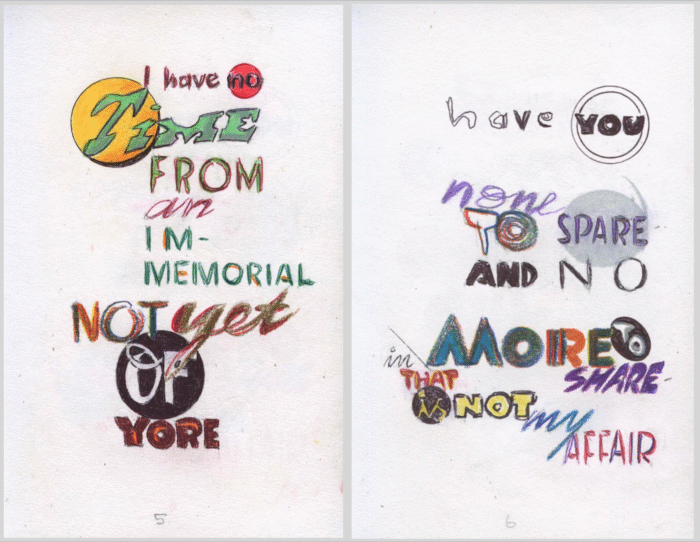 I have no
TIME
FROM
an
IM-
MEMORIAL
NOT yet
OF
YORE
5
have YOU
none
TO SPARE
AND NO
in MORE TO
THAT SHARE-
is NOT my
AFFAIR
6